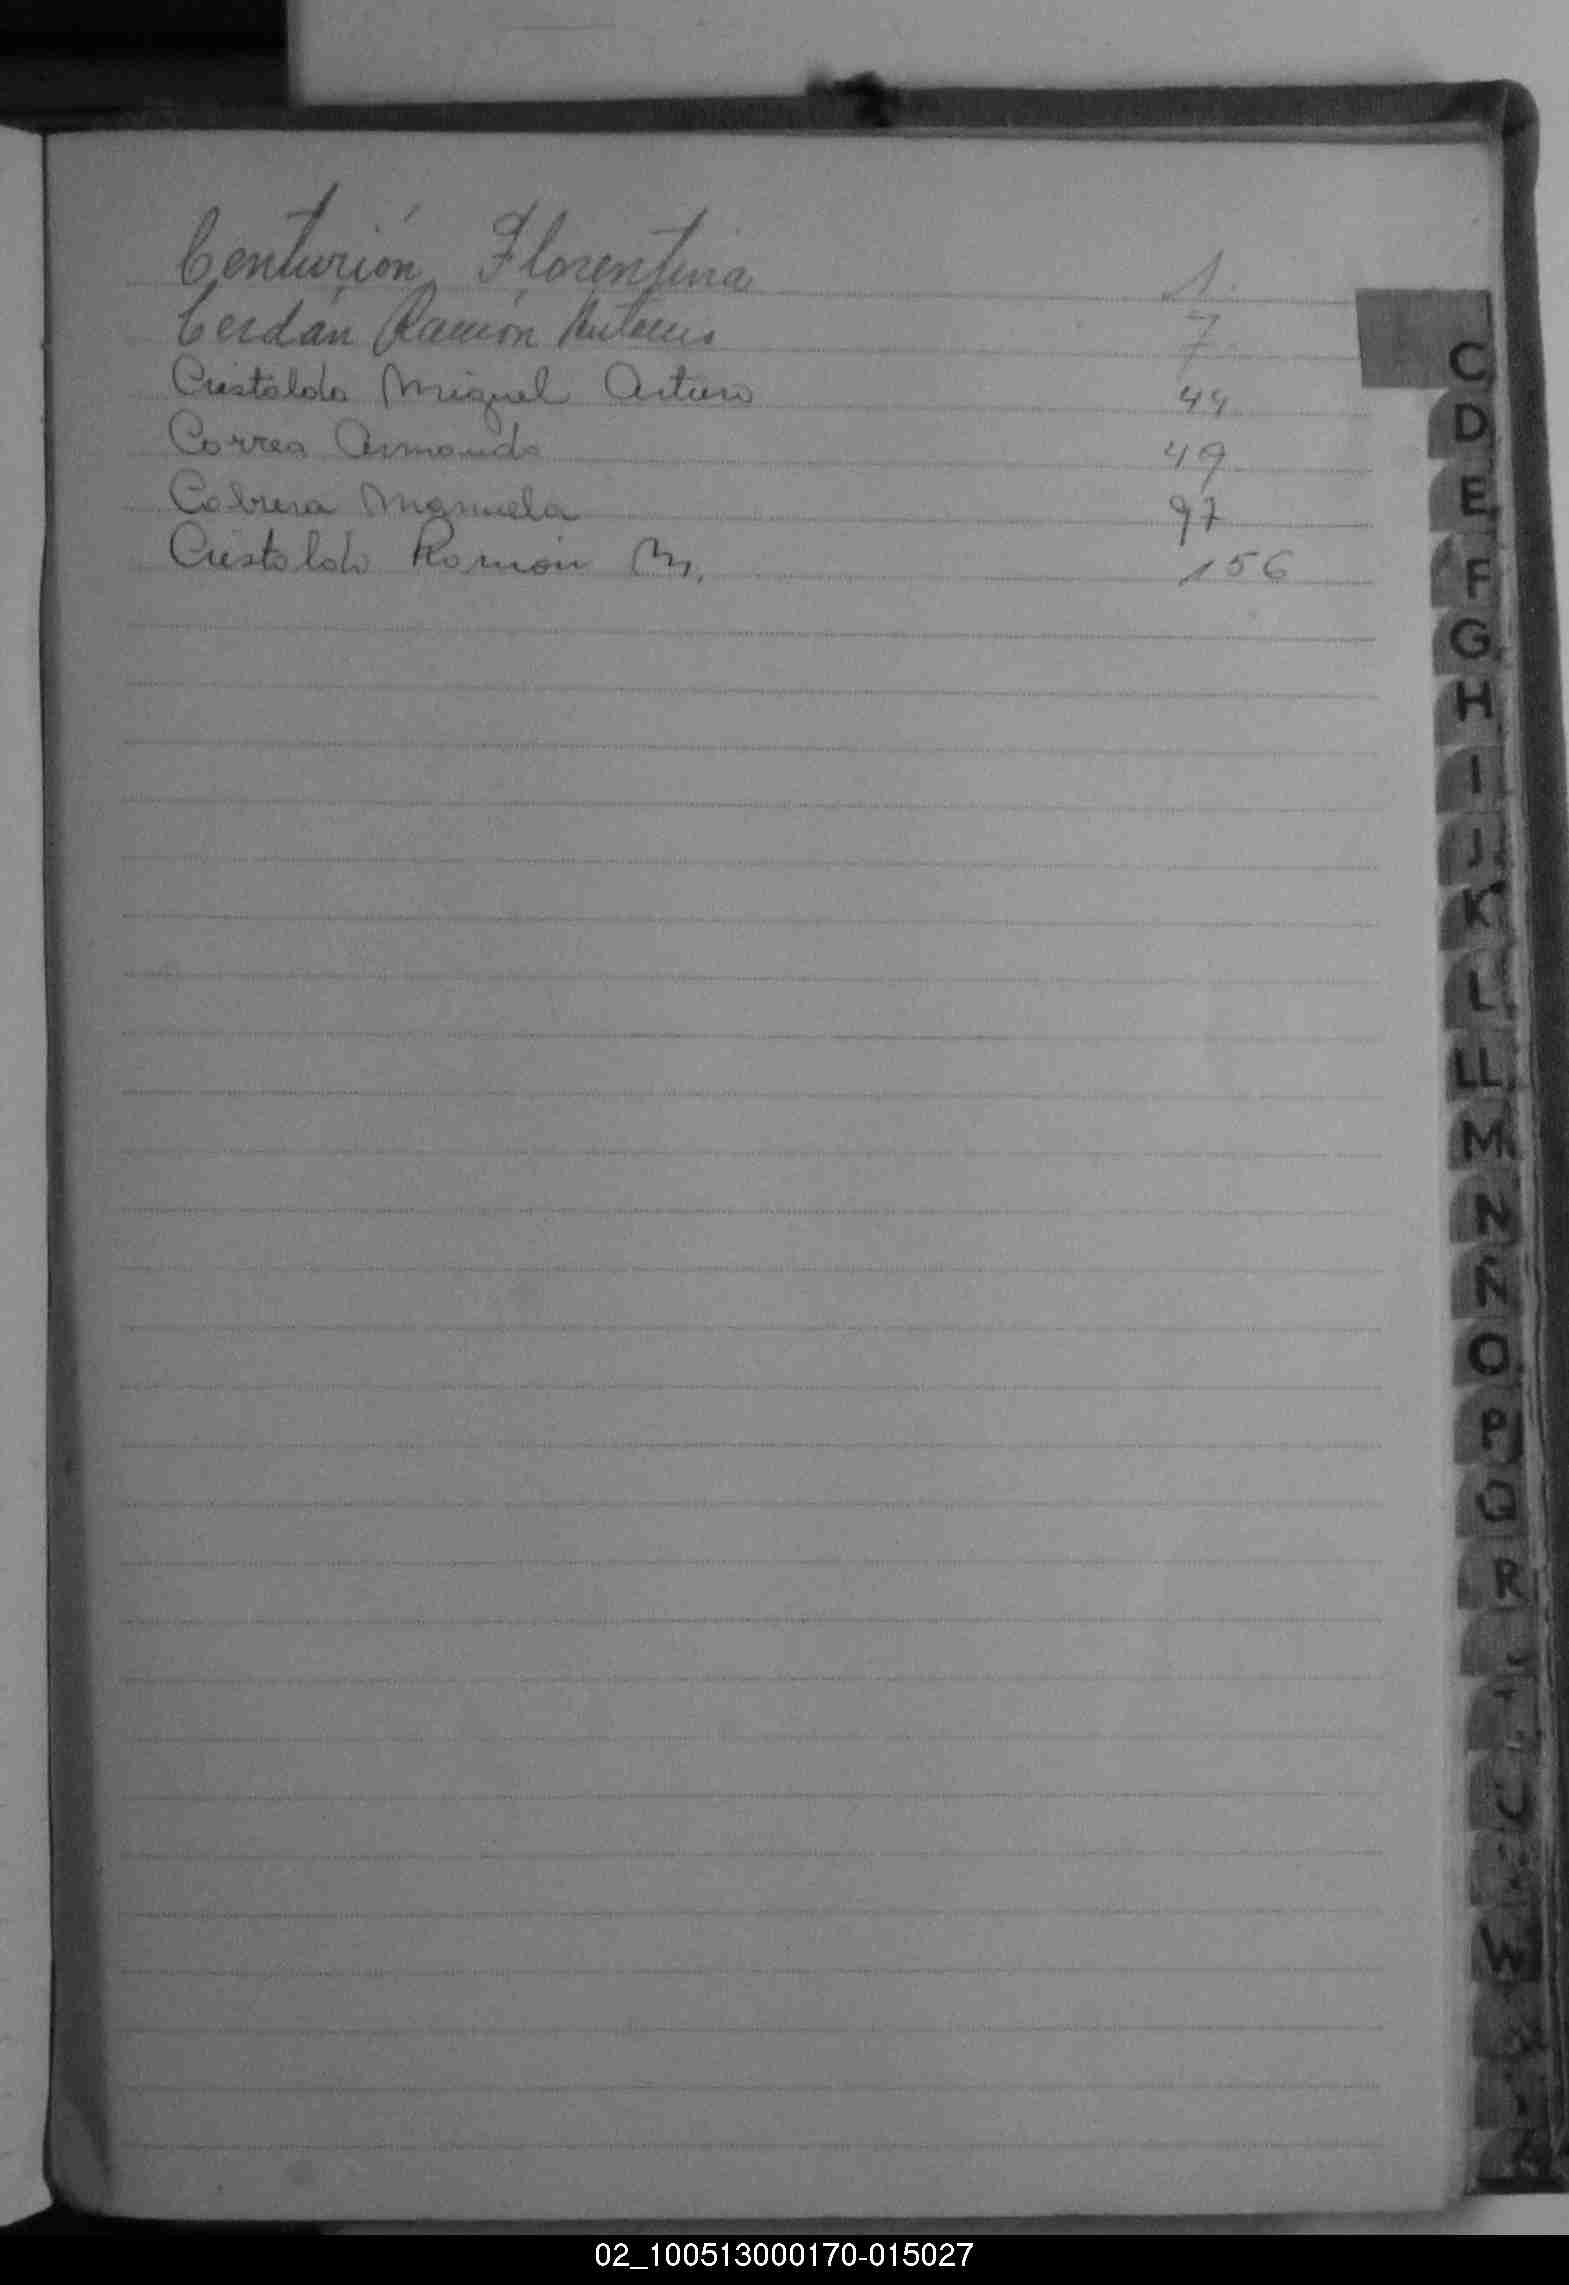 Centurión Florentina 1.
Cerdán Ramón Antonio 7.
Cristaldo Miguel Arturo 44
Correa Armando 49
Cabrera Manuela 97
Cristaldo Ramón M. 156
C
D
E
F
G
H
I
J
K
L
LL
M
N
Ñ
O
P
Q
R
T
U
W
02_100513000170-015027